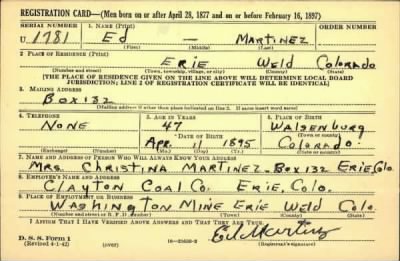 REGISTRATION CARD—(Men born on or after April 28, 1877 and on or before February 16, 1897)
SERIAL NUMBER 1. NAME (Print) ORDER NUMBER
U. 1781 Ed — Martinez
(First) (Middle) (Last)
2. PLACE OF RESIDENCE (Print)
Erie Weld Colorado
(Number and street) (Town, township, village, or city) (County) (State)
[THE PLACE OF RESIDENCE GIVEN ON THE LINE ABOVE WILL DETERMINE LOCAL BOARD
JURISDICTION; LINE 2 OF REGISTRATION CERTIFICATE WILL BE IDENTICAL]
3. MAILING ADDRESS
Box 132
[Mailing address if other than place indicated on line 2. If same insert word same]
4. TELEPHONE 5. AGE IN YEARS 6. PLACE OF BIRTH
None 47 Walsenburg
DATE OF BIRTH (Town or county)
Apr. 11 1895 Colorado.
(Exchange) (Number) (Mo.) (Day) (Yr.) (State or country)
7. NAME AND ADDRESS OF PERSON WHO WILL ALWAYS KNOW YOUR ADDRESS
Mrs. Christina Martinez. Box 132 Erie, Colo
8. EMPLOYER'S NAME AND ADDRESS
Clayton Coal Co. Erie, Colo.
9. PLACE OF EMPLOYMENT OR BUSINESS
Washington Mine Erie Weld Colo
(Number and street or R. F. D. number) (Town) (County) (State)
I AFFIRM THAT I HAVE VERIFIED ABOVE ANSWERS AND THAT THEY ARE TRUE.
D. S. S. Form 1
(Revised 4-1-42) (over) Ed Martinez
(Registrant's signature)